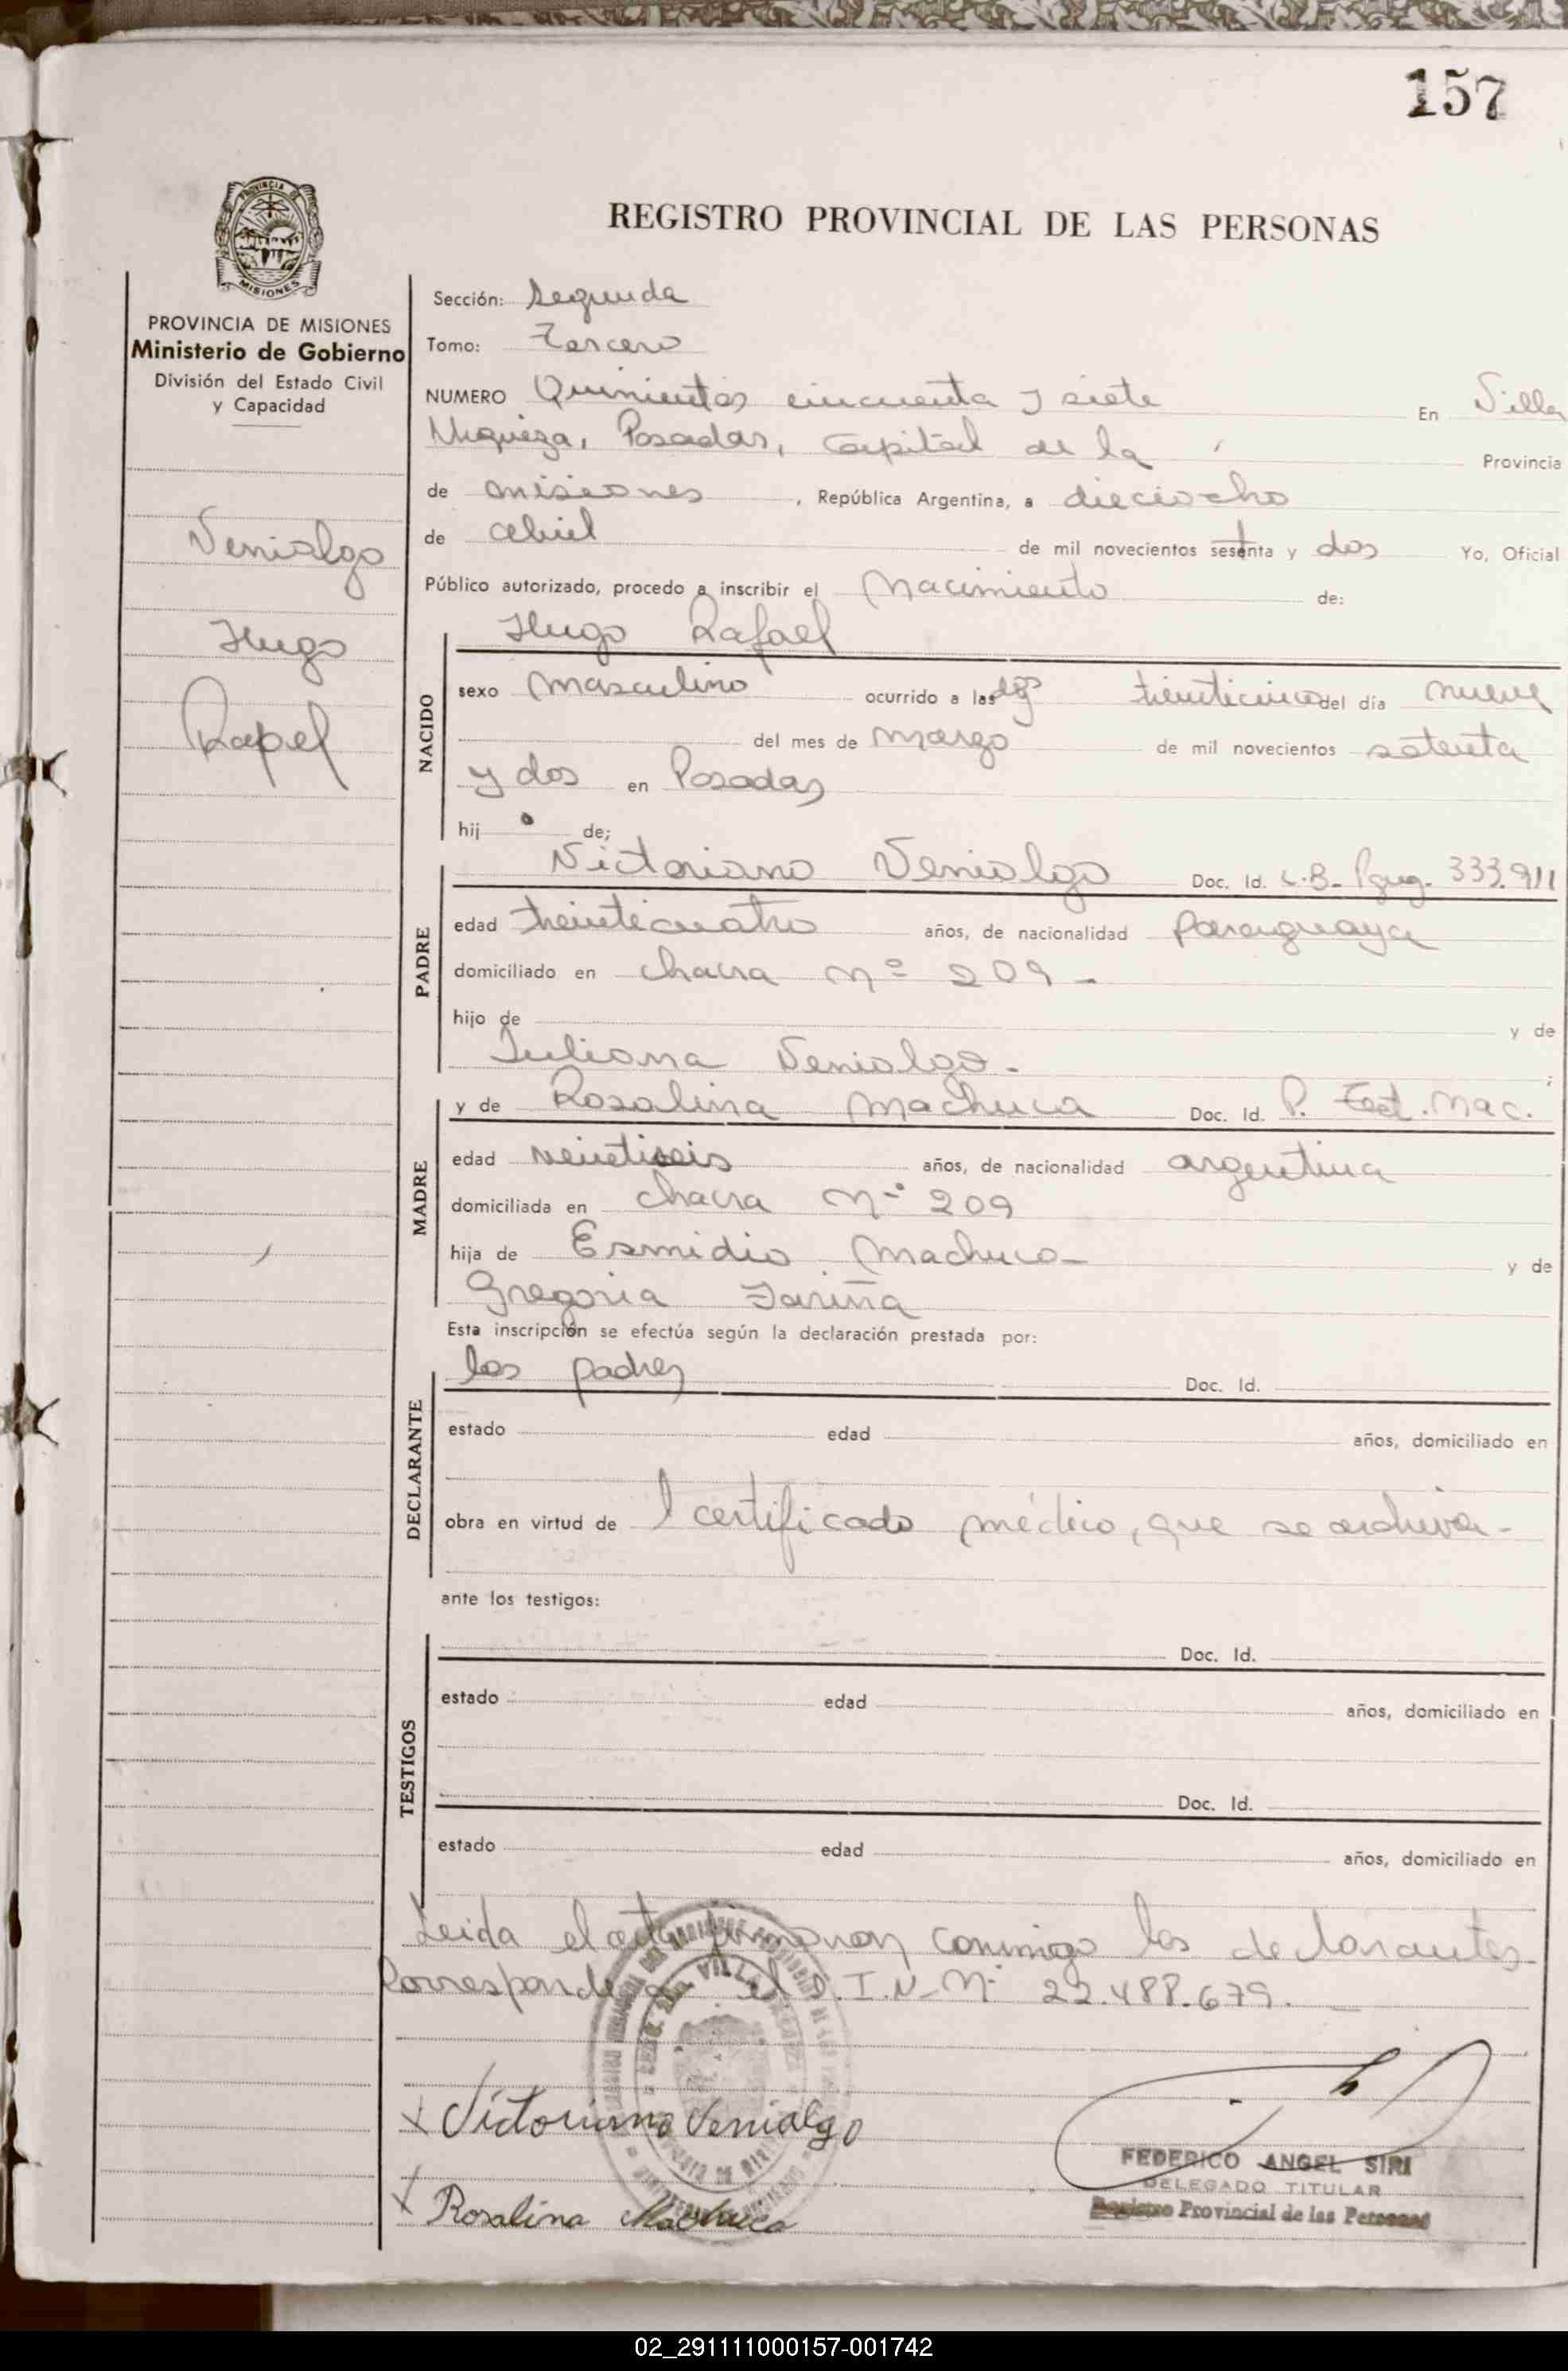 157
PROVINCIA DE MISIONES
REGISTRO PROVINCIAL DE LAS PERSONAS
PROVINCIA DE MISIONES
Ministerio de Gobierno
División del Estado Civil
y Capacidad
Venialgo
Hugo
Rafael
Sección: Segunda
Tomo: Tercero
NUMERO Quinientos cincuenta y siete En Villa
Urquiza, Posadas, Capital de la Provincia
de Misiones, República Argentina, a dieciocho
de abril de mil novecientos setenta y dos Yo, Oficial
Público autorizado, procedo a inscribir el Nacimiento de:
Hugo Rafael
NACIDO
sexo masculino ocurrido a las dos treinticinco del día nueve
del mes de marzo de mil novecientos setenta
y dos en Posadas
hijo de;
PADRE
Victoriano Venialgo Doc. Id. C.B. Pgug. 333.911
edad treinticuatro años, de nacionalidad paraguaya
domiciliado en chacra nº 209 -
hijo de y de
Juliana Venialgo - ;
MADRE
y de Rosalina Machuca Doc. Id. P. Fect. Mac.
edad veintiseis años, de nacionalidad argentina
domiciliada en chacra nº 209
hija de Esmidio Machuca - y de
Gregoria Fariña
Esta inscripción se efectúa según la declaración prestada por:
DECLARANTE
los padres Doc. Id.
estado edad años, domiciliado en
obra en virtud de l certificado médico, que se archiva -
ante los testigos:
TESTIGOS
Doc. Id.
estado edad años, domiciliado en
Doc. Id.
estado edad años, domiciliado en
Leida el acta firmaron conmigo los declarantes
Corresponde el D.I.N-Nº 22.488.679. -
x Victoriano Venialgo
x Rosalina Machuca
FEDERICO ANGEL SIRI
DELEGADO TITULAR
Registro Provincial de las Personas
02_291111000157-001742